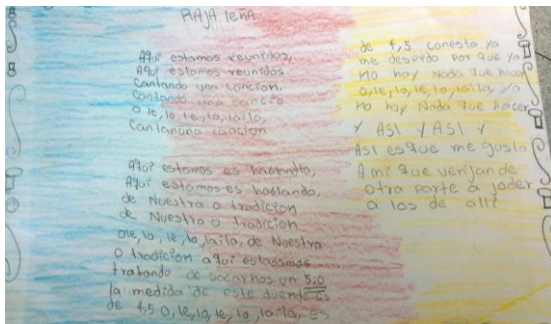 RAJA leÑA
Aquí estamos reunidos,
Aquí estamos reunidos
Cantando una canción,
Cantando una cancio
o le, lo, le, lo, laila,
Cantanuna canción
Aquí estamos es hablando,
Aquí estamos es hablando,
de Nuestra o tradición
de Nuestra o tradición
ole, lo, le, lo, laila, de Nuestra
o tradicion aquí estassmos
tratando de sacarnos un 5,0
la medida de este duende es
de 4,5 0, le, lo, le, lo, la ila, es
de 4,5 conesta ya
me despido por que ya
no hay Nada que hacer
o, le, lo, le, lo, la ila, ya
no hay Nada que hacer
Y ASI Y ASI Y
Asi es que me gusta
A mi que venjan de
otra parte a joder
a los de alli